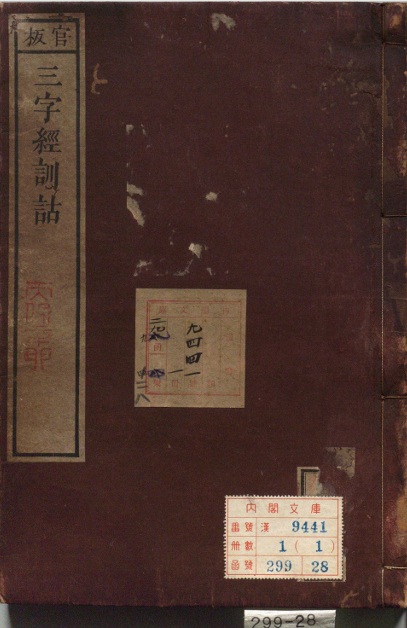 官板
三字經訓詁
九四四一
內閣文庫
番號 漢 9441
冊數 1 (1)
函號 299 28
299-28